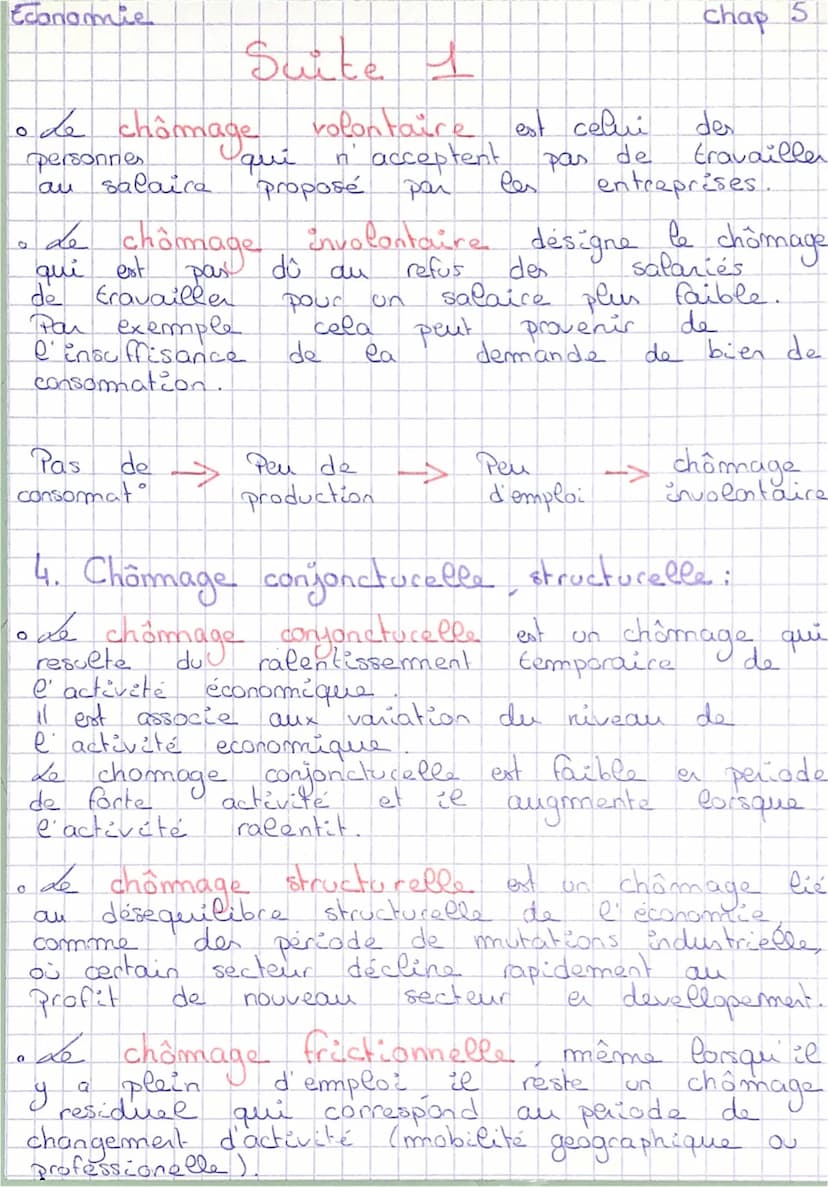 Economie chap 5
Suite 1
• Le chômage volontaire est celui des
personnes qui n'acceptent pas de travailler
au salaire proposé par les entreprises.
• Le chômage involontaire désigne le chômage
qui est pas dû au refus des salariés
de travailler pour un salaire plus faible.
Par exemple cela peut provenir de
l'insuffisance de la demande de bien de
consommation.
Pas de → Peu de → Peu → chômage
consommat° production d'emploi involontaire
4. Chômage conjoncturelle, structurelle :
• Le chômage conjoncturelle est un chômage qui
resulte du ralentissement temporaire de
l'activité économique.
il est associe aux variation du niveau de
l'activité economique.
Le chomage conjoncturelle est faible en periode
de forte activité et il augmente lorsque
l'activité ralentit.
• Le chômage structurelle est un chômage lié
au désequilibre structurelle de l'économie,
comme des période de mutations industrielle,
où certain secteur décline rapidement au
profit de nouveau secteur en developpement.
• Le chômage frictionnelle, même lorsqu'il
y a plein d'emploi il reste un chômage
residuel qui correspond au periode de
changement d'activité (mobilité geographique ou
professionelle).